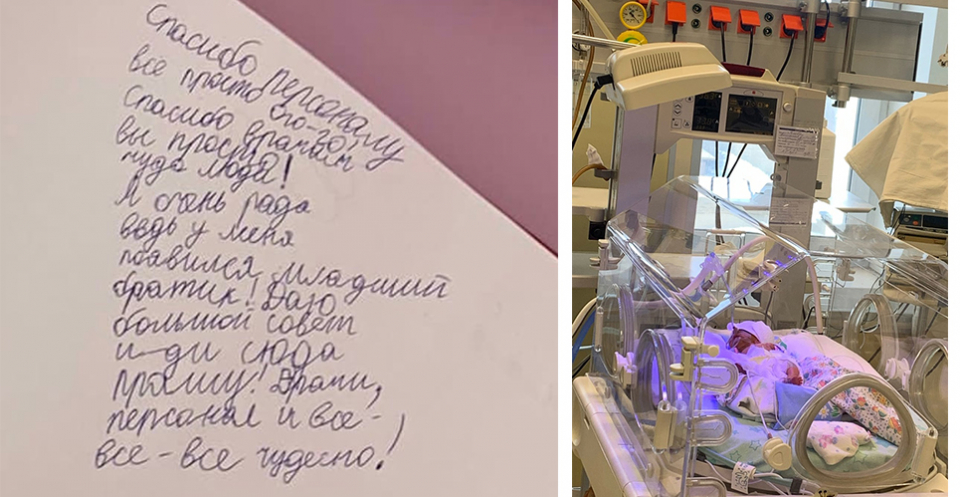 Спасибо персоналу
все просто ого-го
Спасибо врачам
вы просто
чуда люди!
Я очень рада
ведь у меня
появился младший
братик! Даю
большой совет
и-ди сюда
прошу! Врачи,
персонал и все-
все-все чудесно!